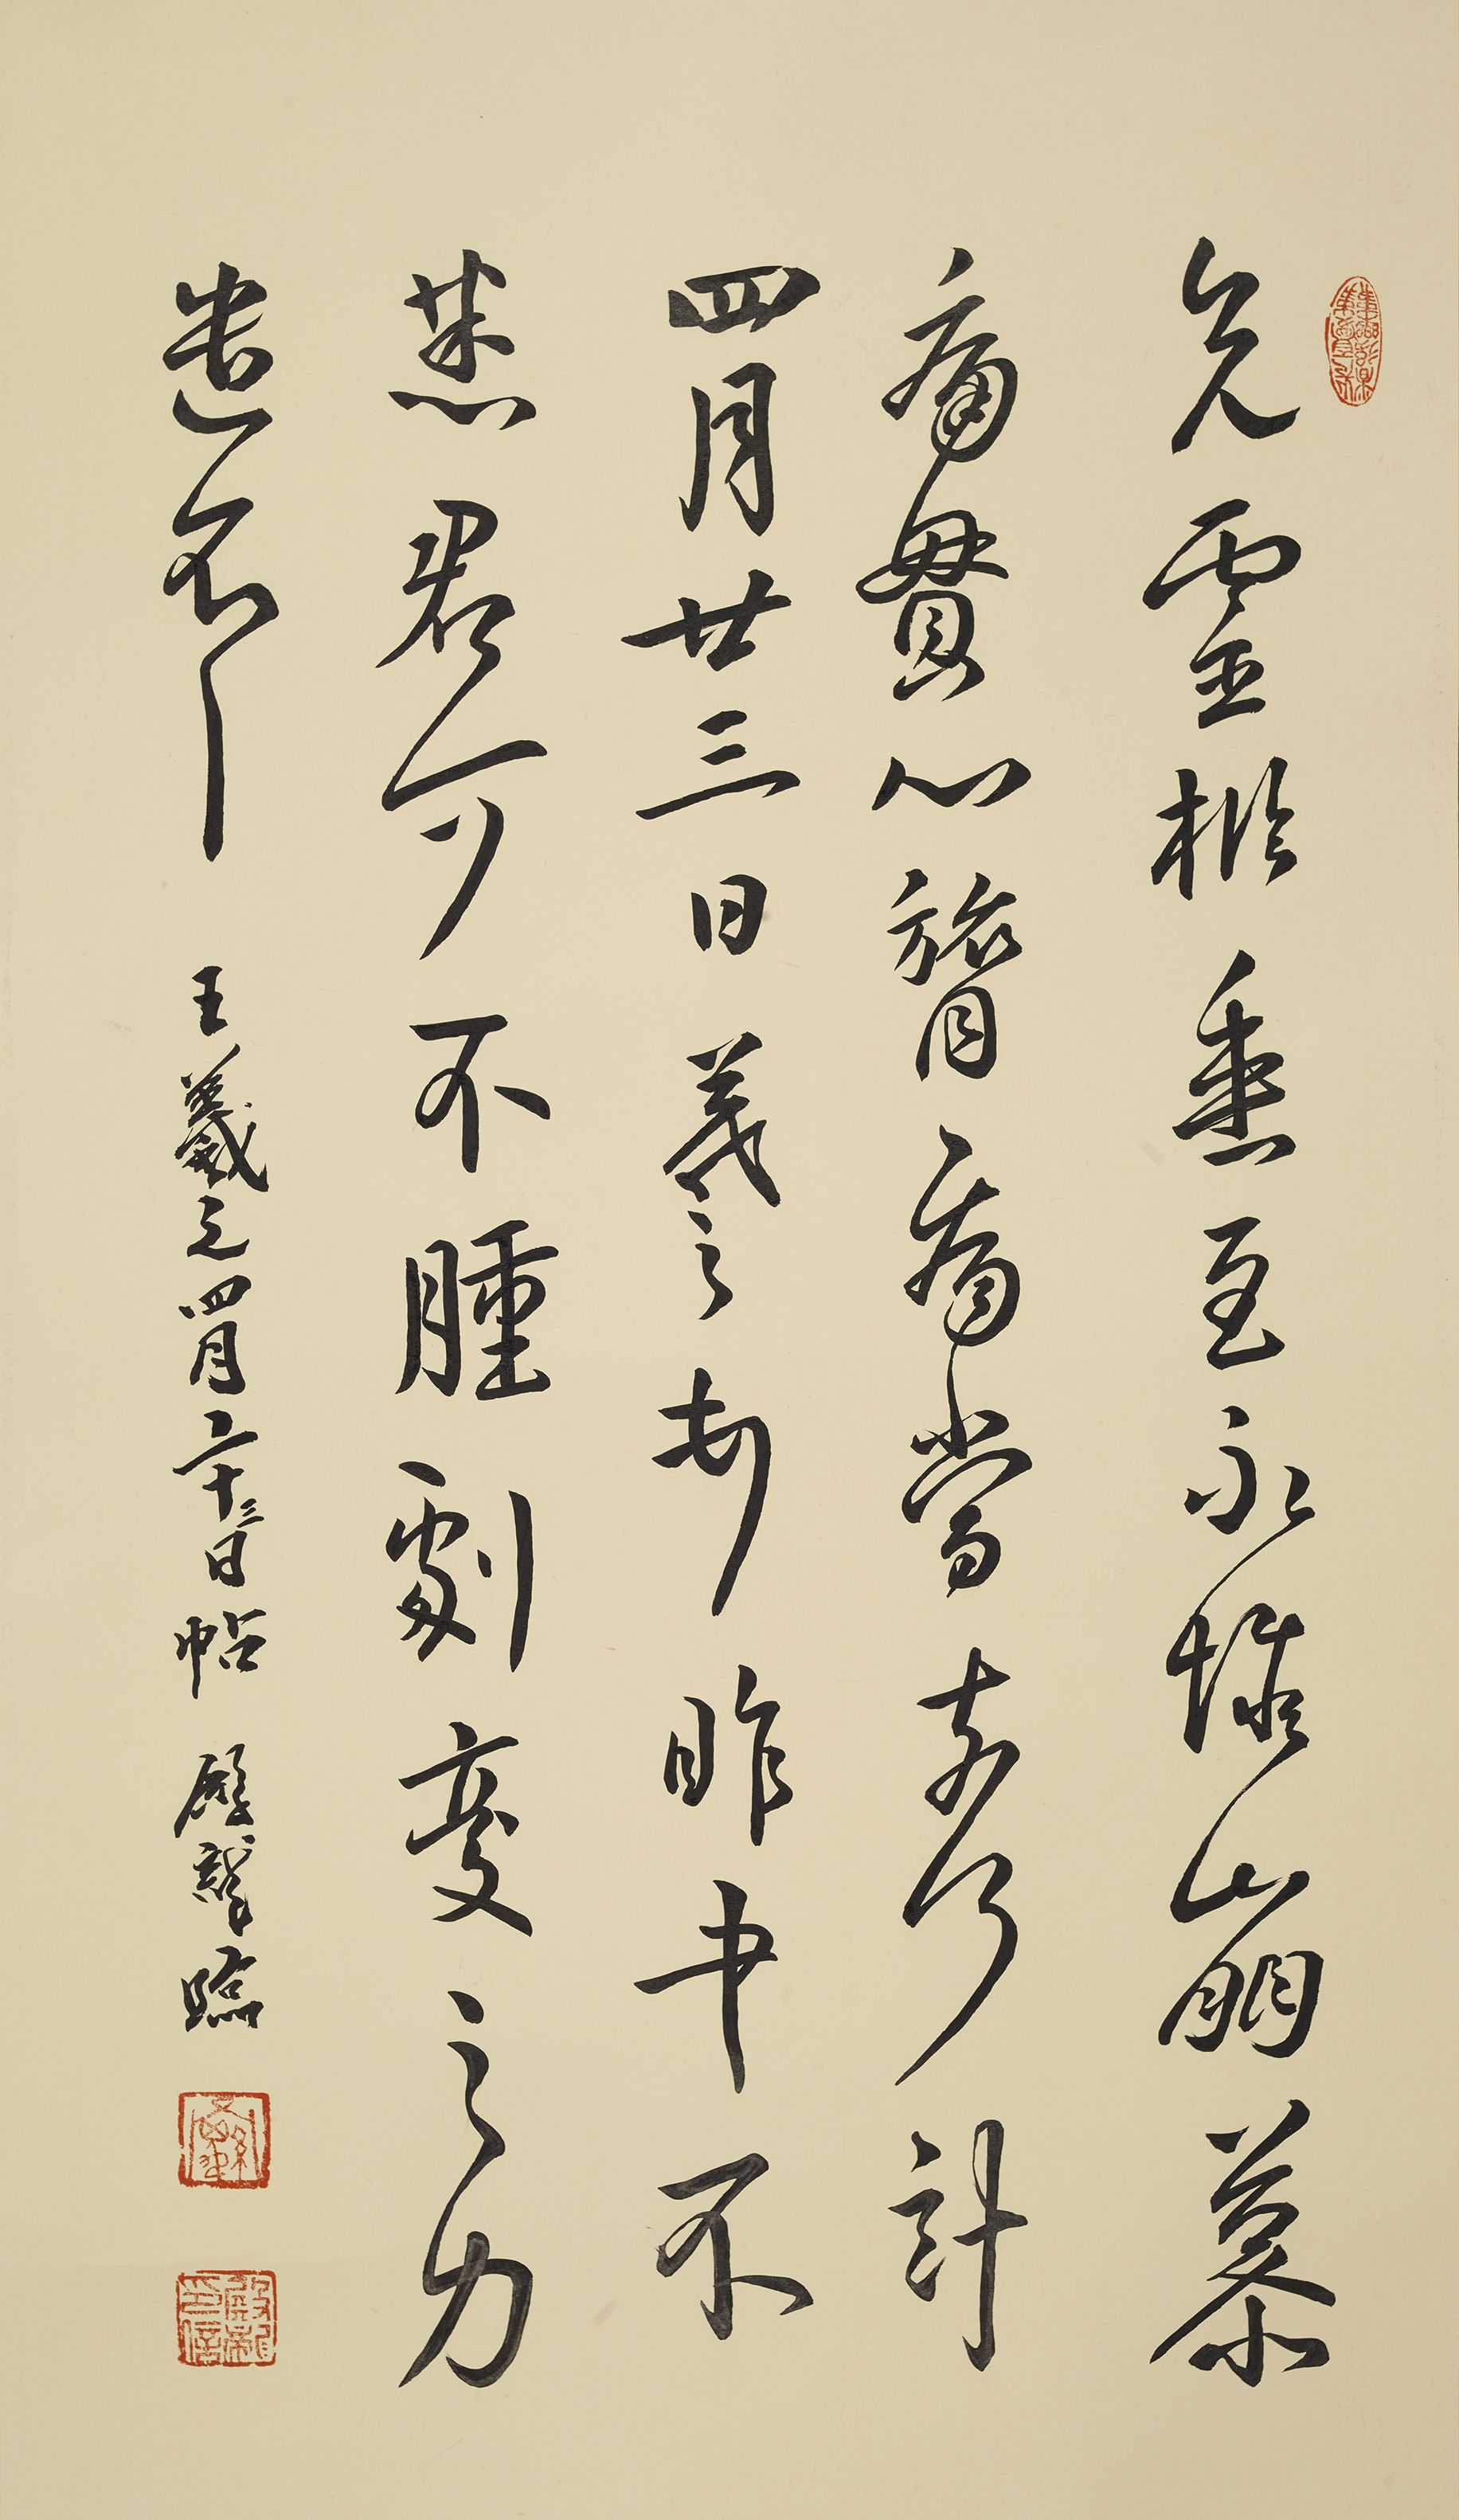 兄靈柩垂至永惟崩慕
痛貫心膂痛當奈何計
四月廿三日羲之頓首昨書不
悉君可不腫劇憂之力
遣不
王羲之四月二十三日帖 臨